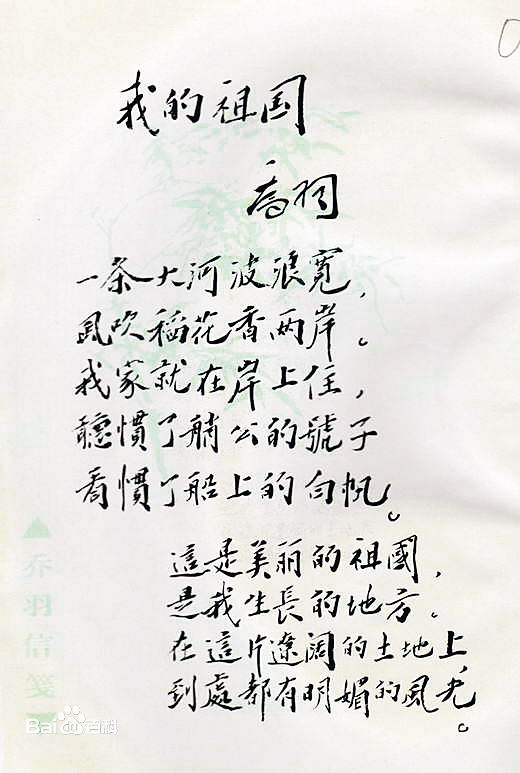 我的祖国
喬羽
一条大河波浪寬，
風吹稻花香两岸。
我家就在岸上住，
聽慣了艄公的號子
看慣了船上的白帆。
這是美丽的祖國，
是我生長的地方。
在這片遼阔的土地上，
到處都有明媚的風光。
乔羽信笺
Bai百科